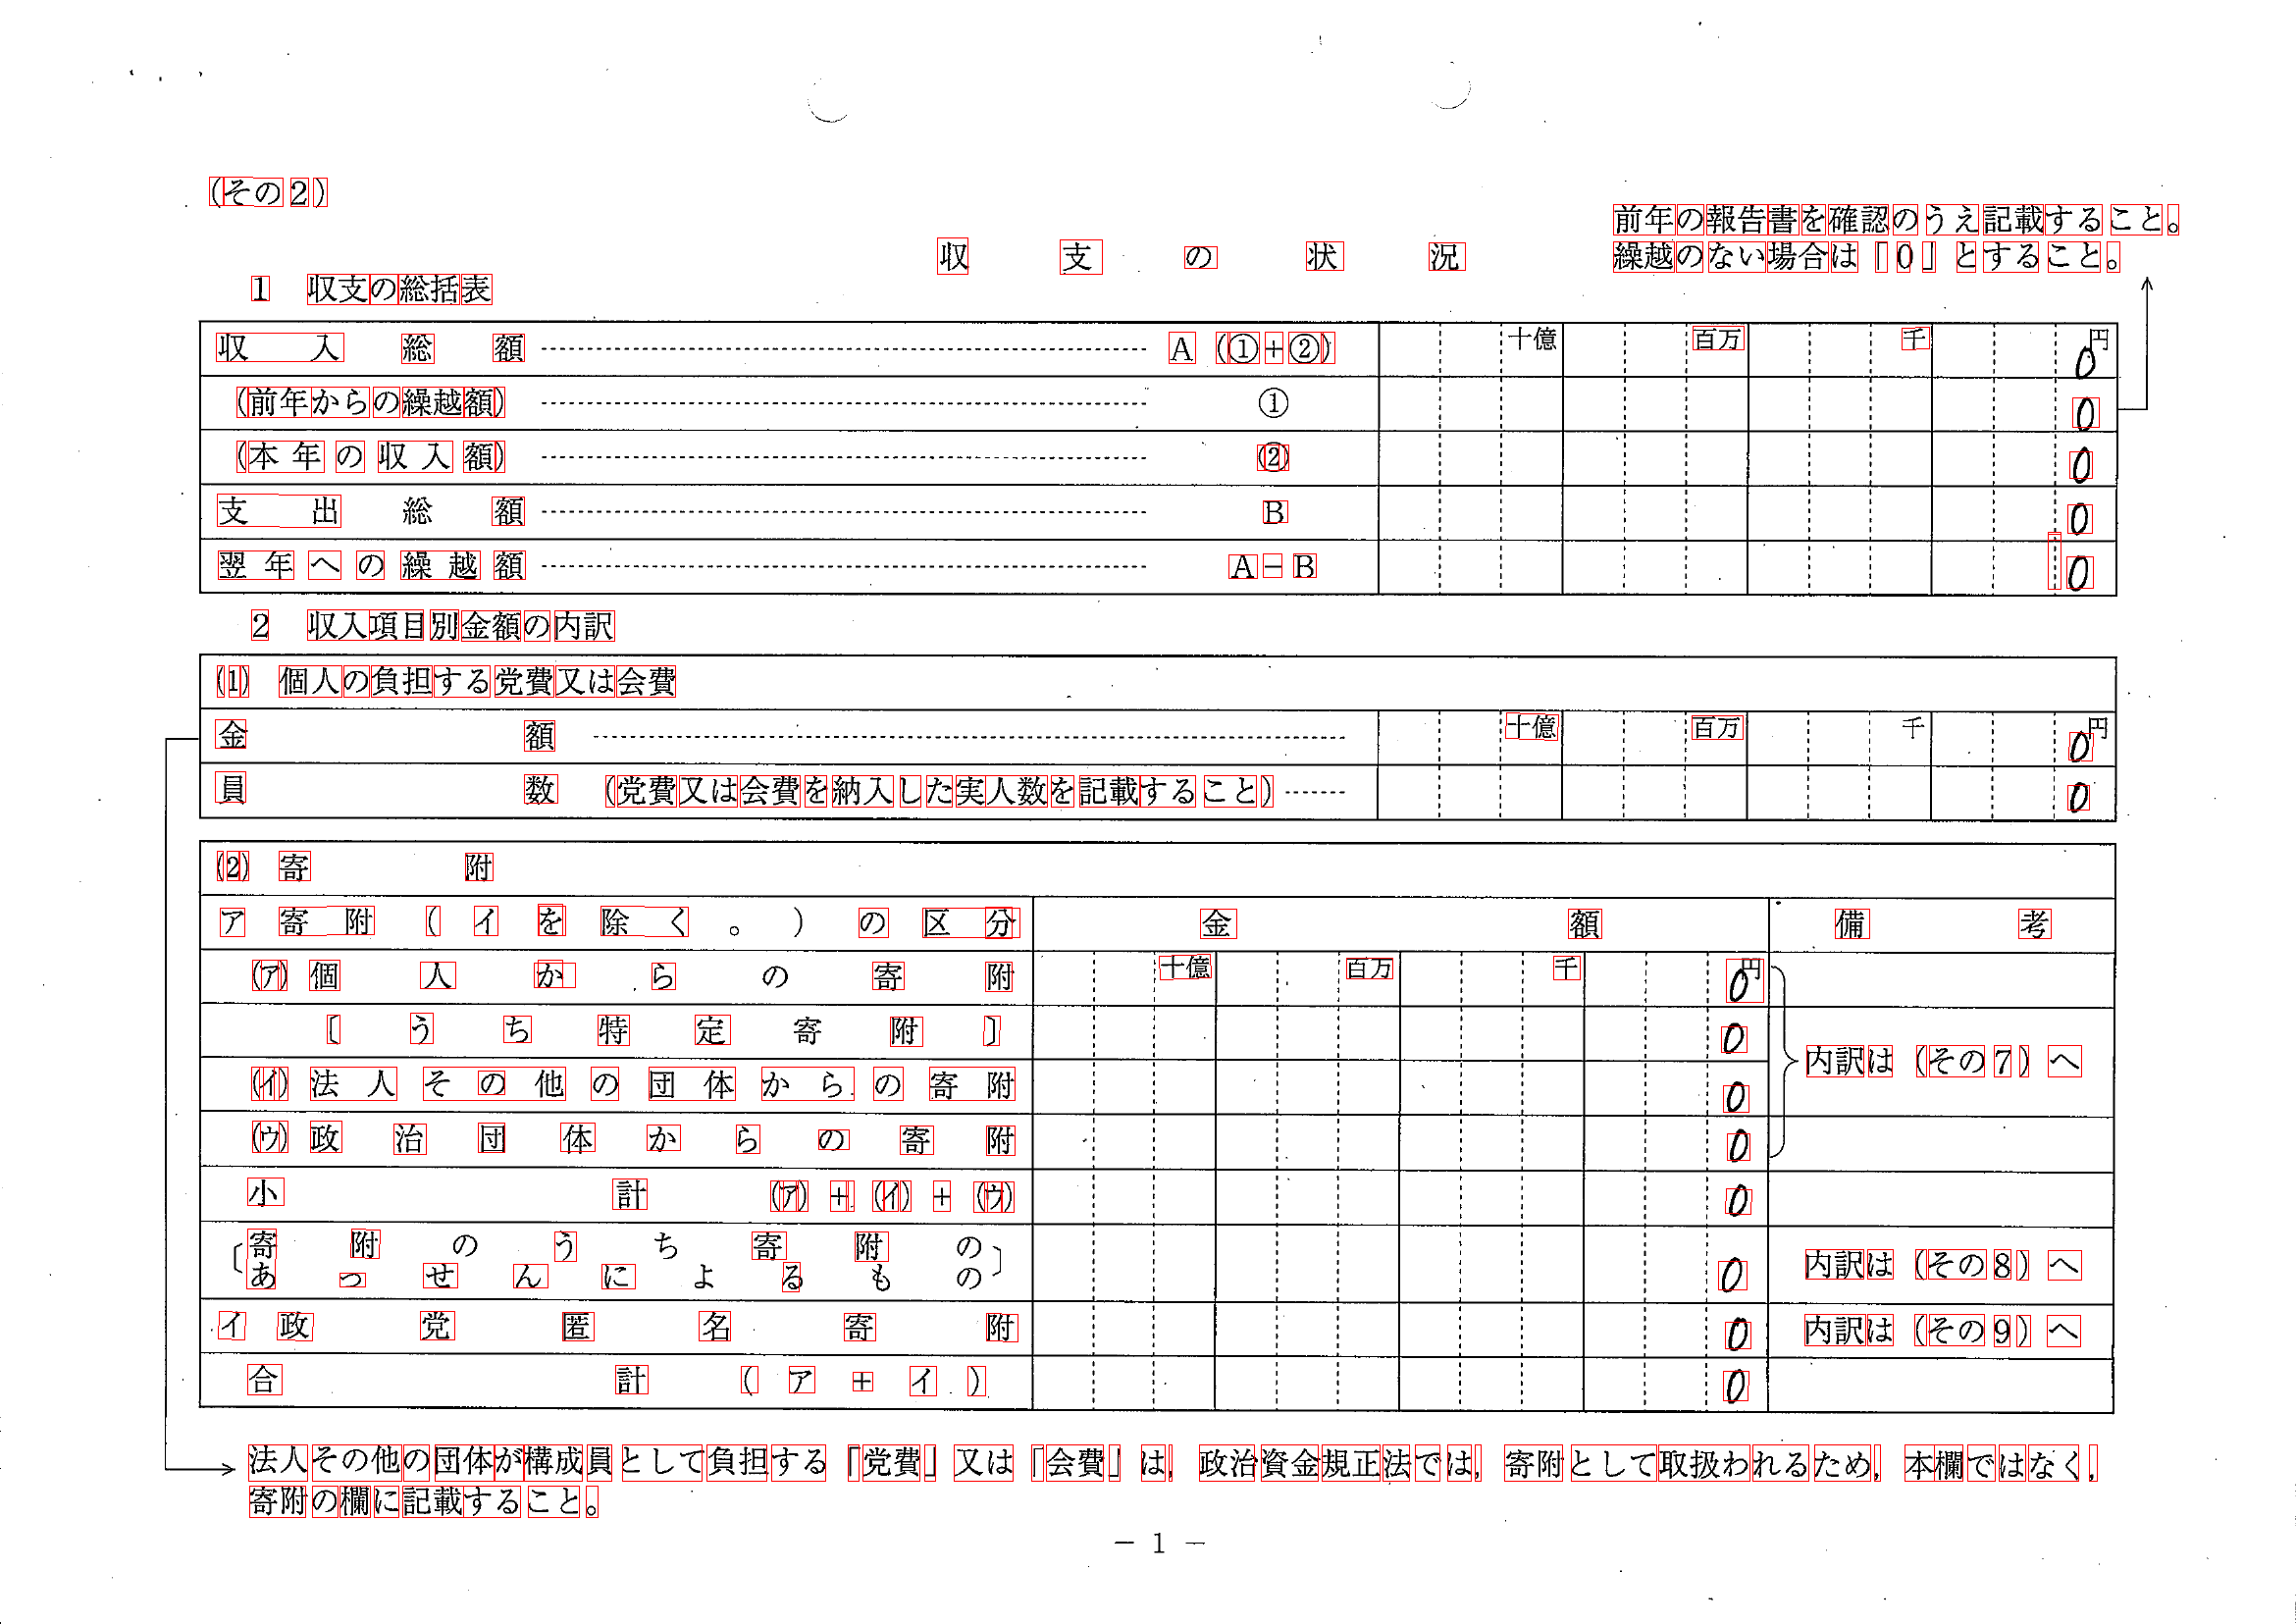 (その2)
前年の報告書を確認のうえ記載すること。
収支の状況
繰越のない場合は『0』とすること。
1 収支の総括表
収入総額 A (①+②) 十億 百万 千 円 0
(前年からの繰越額) ① 0
(本年の収入額) ② 0
支出総額 B 0
翌年への繰越額 A-B 0
2 収入項目別金額の内訳
(1) 個人の負担する党費又は会費
金額 十億 百万 千 円 0
員数 (党費又は会費を納入した実人数を記載すること) 0
(2) 寄附
ア 寄附(イを除く。)の区分 金額 備考
(ア) 個人からの寄附 十億 百万 千 円 0
〔うち特定寄附〕 0
内訳は (その7) へ
(イ) 法人その他の団体からの寄附 0
(ウ) 政治団体からの寄附 0
小計 (ア)+(イ)+(ウ) 0
〔寄附のうち寄附の
あっせんによるもの〕 0 内訳は (その8) へ
イ 政党匿名寄附 0 内訳は (その9) へ
合計 (ア+イ) 0
法人その他の団体が構成員として負担する『党費』又は『会費』は,政治資金規正法では,寄附として取扱われるため,本欄ではなく,
寄附の欄に記載すること。
— 1 —